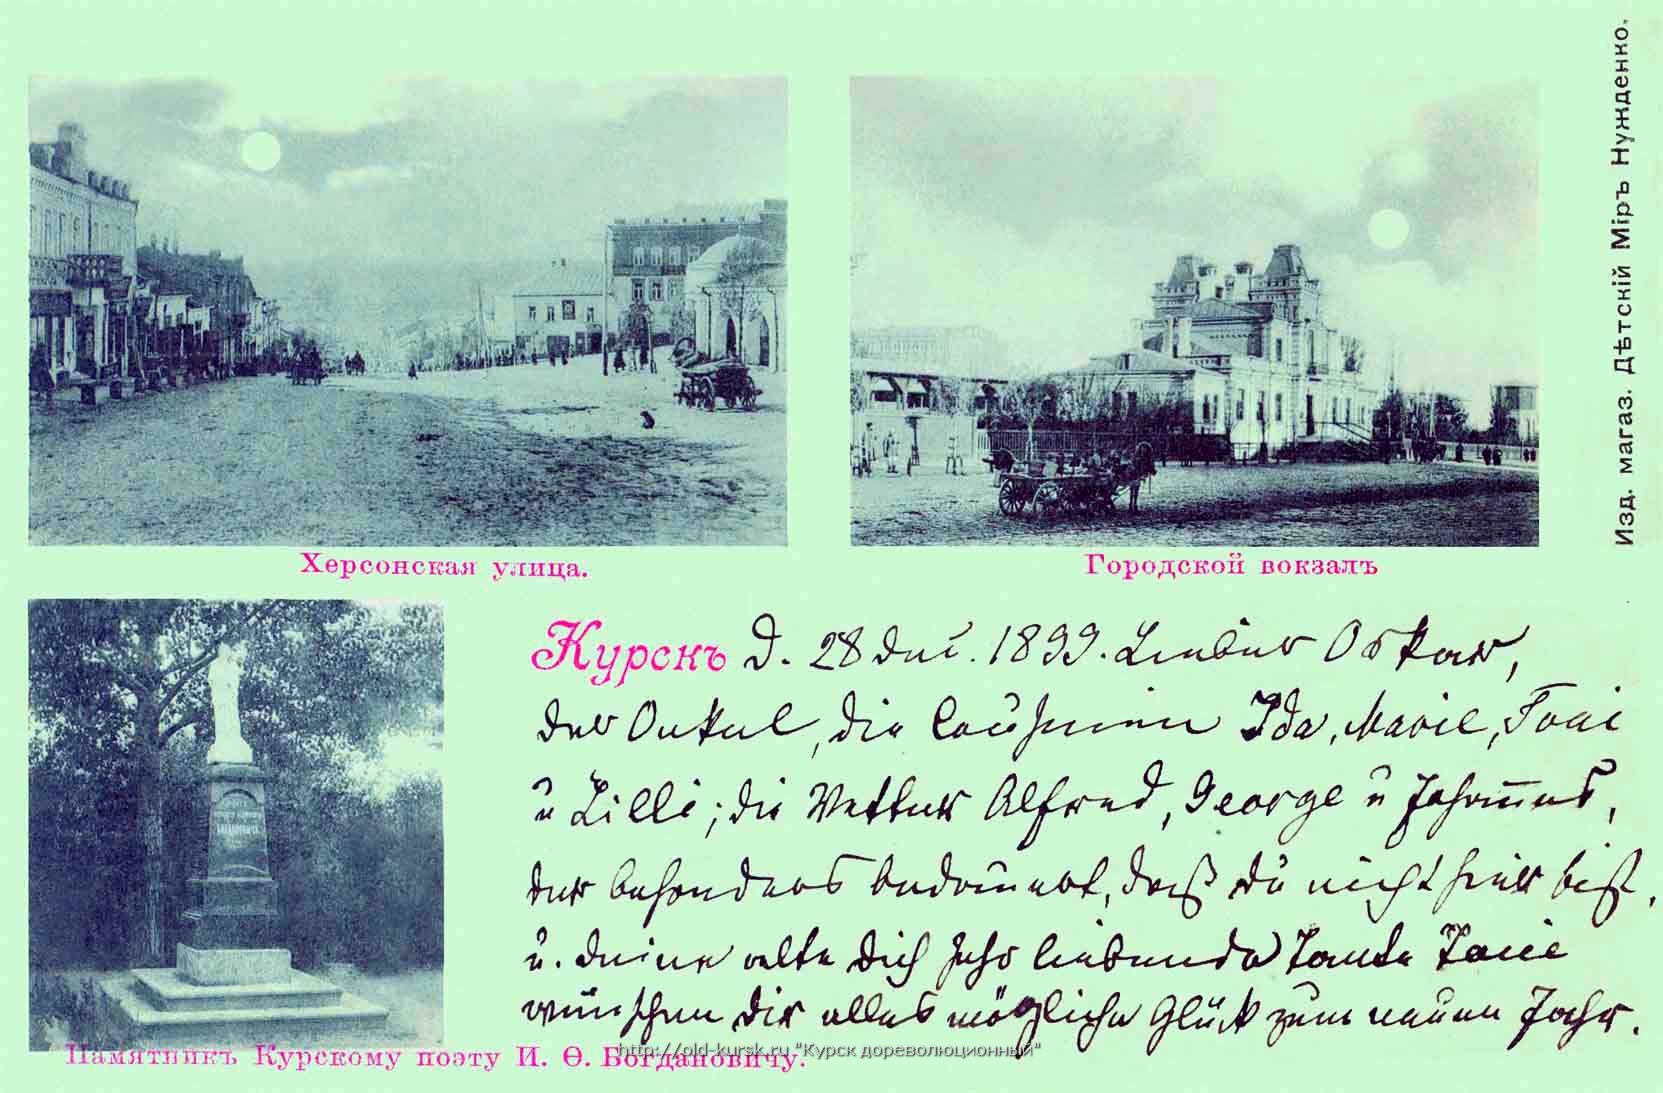 Изд. магаз. Дѣтскій Міръ Нужденко.
Херсонская улица.
Городской вокзалъ
Курскъ d. 28 Dec. 1899. Lieber Oskar,
der Onkel, die Cousinen Ida, Marie, Toni
u Lilli; die Vetter Alfred, George u Johannes,
der besonders bedauert, daß du nicht hier bist,
u. deine alte dich sehr liebende Tante
wünschen dir alles mögliche Glück zum neuen Jahr.
Памятникъ Курскому поэту И. Ѳ. Богдановичу.
http://old-kursk.ru "Курск дореволюционный"